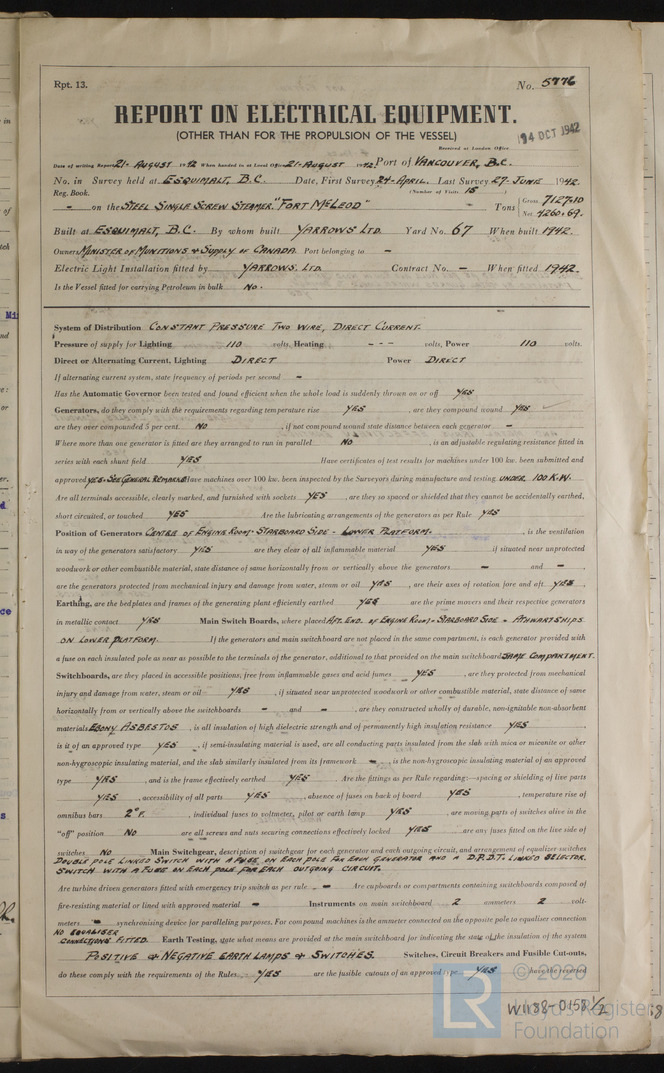 Rpt. 13. No. 5776
REPORT ON ELECTRICAL EQUIPMENT.
(OTHER THAN FOR THE PROPULSION OF THE VESSEL)
14 OCT 1942
Received at London Office
Date of writing Report 21- AUGUST 1942 When handed in at Local Office 21- AUGUST 1942. Port of VANCOUVER, B.C.
No. in Survey held at ESQUIMALT, B.C. Date, First Survey 24- APRIL. Last Survey 27- JUNE 1942.
Reg. Book. (Number of Visits 18
- on the STEEL SINGLE SCREW STEAMER. "FORT MCLEOD" Tons { Gross 7127.10
Net 4260.69.
Built at ESQUIMALT, B.C. By whom built YARROWS LTD. Yard No. 67 When built 1942.
Owners MINISTER OF MUNITIONS & SUPPLY OF CANADA. Port belonging to -
Electric Light Installation fitted by YARROWS. LTD. Contract No. - When fitted 1942.
Is the Vessel fitted for carrying Petroleum in bulk NO.
System of Distribution CONSTANT PRESSURE TWO WIRE, DIRECT CURRENT.
Pressure of supply for Lighting 110 volts, Heating - - - volts, Power 110 volts.
Direct or Alternating Current, Lighting DIRECT Power DIRECT
If alternating current system, state frequency of periods per second -
Has the Automatic Governor been tested and found efficient when the whole load is suddenly thrown on or off YES
Generators, do they comply with the requirements regarding temperature rise YES , are they compound wound YES
are they over compounded 5 per cent. NO , if not compound wound state distance between each generator -
Where more than one generator is fitted are they arranged to run in parallel NO , is an adjustable regulating resistance fitted in
series with each shunt field YES Have certificates of test results for machines under 100 kw. been submitted and
approved YES. SEE GENERAL REMARKS Have machines over 100 kw. been inspected by the Surveyors during manufacture and testing UNDER 100 K.W.
Are all terminals accessible, clearly marked, and furnished with sockets YES , are they so spaced or shielded that they cannot be accidentally earthed,
short circuited, or touched YES Are the lubricating arrangements of the generators as per Rule YES
Position of Generators CENTRE OF ENGINE ROOM - STARBOARD SIDE - LOWER PLATFORM. , is the ventilation
in way of the generators satisfactory YES are they clear of all inflammable material YES if situated near unprotected
woodwork or other combustible material, state distance of same horizontally from or vertically above the generators - and - ,
are the generators protected from mechanical injury and damage from water, steam or oil YES , are their axes of rotation fore and aft. YES.
Earthing, are the bedplates and frames of the generating plant efficiently earthed YES are the prime movers and their respective generators
in metallic contact YES Main Switch Boards, where placed AFT. END. OF ENGINE ROOM - STARBOARD SIDE - ATHWARTSHIPS
ON LOWER PLATFORM. If the generators and main switchboard are not placed in the same compartment, is each generator provided with
a fuse on each insulated pole as near as possible to the terminals of the generator, additional to that provided on the main switchboard SAME COMPARTMENT.
Switchboards, are they placed in accessible positions, free from inflammable gases and acid fumes YES , are they protected from mechanical
injury and damage from water, steam or oil YES , if situated near unprotected woodwork or other combustible material, state distance of same
horizontally from or vertically above the switchboards - and - , are they constructed wholly of durable, non-ignitable non-absorbent
materials EBONY ASBESTOS , is all insulation of high dielectric strength and of permanently high insulation resistance YES ,
is it of an approved type YES , if semi-insulating material is used, are all conducting parts insulated from the slab with mica or micanite or other
non-hygroscopic insulating material, and the slab similarly insulated from its framework - , is the non-hygroscopic insulating material of an approved
type YES , and is the frame effectively earthed YES Are the fittings as per Rule regarding:—spacing or shielding of live parts
YES , accessibility of all parts YES , absence of fuses on back of board YES , temperature rise of
omnibus bars 2°F. , individual fuses to voltmeter, pilot or earth lamp YES , are moving parts of switches alive in the
"off" position NO are all screws and nuts securing connections effectively locked YES are any fuses fitted on the live side of
switches NO Main Switchgear, description of switchgear for each generator and each outgoing circuit, and arrangement of equaliser switches
DOUBLE POLE LINKED SWITCH WITH A FUSE ON EACH POLE FOR EACH GENERATOR AND A D.P.D.T. LINKED SELECTOR.
SWITCH WITH A FUSE ON EACH POLE FOR EACH OUTGOING CIRCUIT.
Are turbine driven generators fitted with emergency trip switch as per rule - Are cupboards or compartments containing switchboards composed of
fire-resisting material or lined with approved material - Instruments on main switchboard 2 ammeters 2 volt-
meters - synchronising device for paralleling purposes. For compound machines is the ammeter connected on the opposite pole to equaliser connection
NO EQUALISER
CONNECTIONS FITTED. Earth Testing, state what means are provided at the main switchboard for indicating the state of the insulation of the system
POSITIVE & NEGATIVE EARTH LAMPS & SWITCHES. Switches, Circuit Breakers and Fusible Cut-outs,
do these comply with the requirements of the Rules YES are the fusible cutouts of an approved type YES have the reversed
© 2020
W1188-0158 1/2
LR Lloyd's Register
Foundation